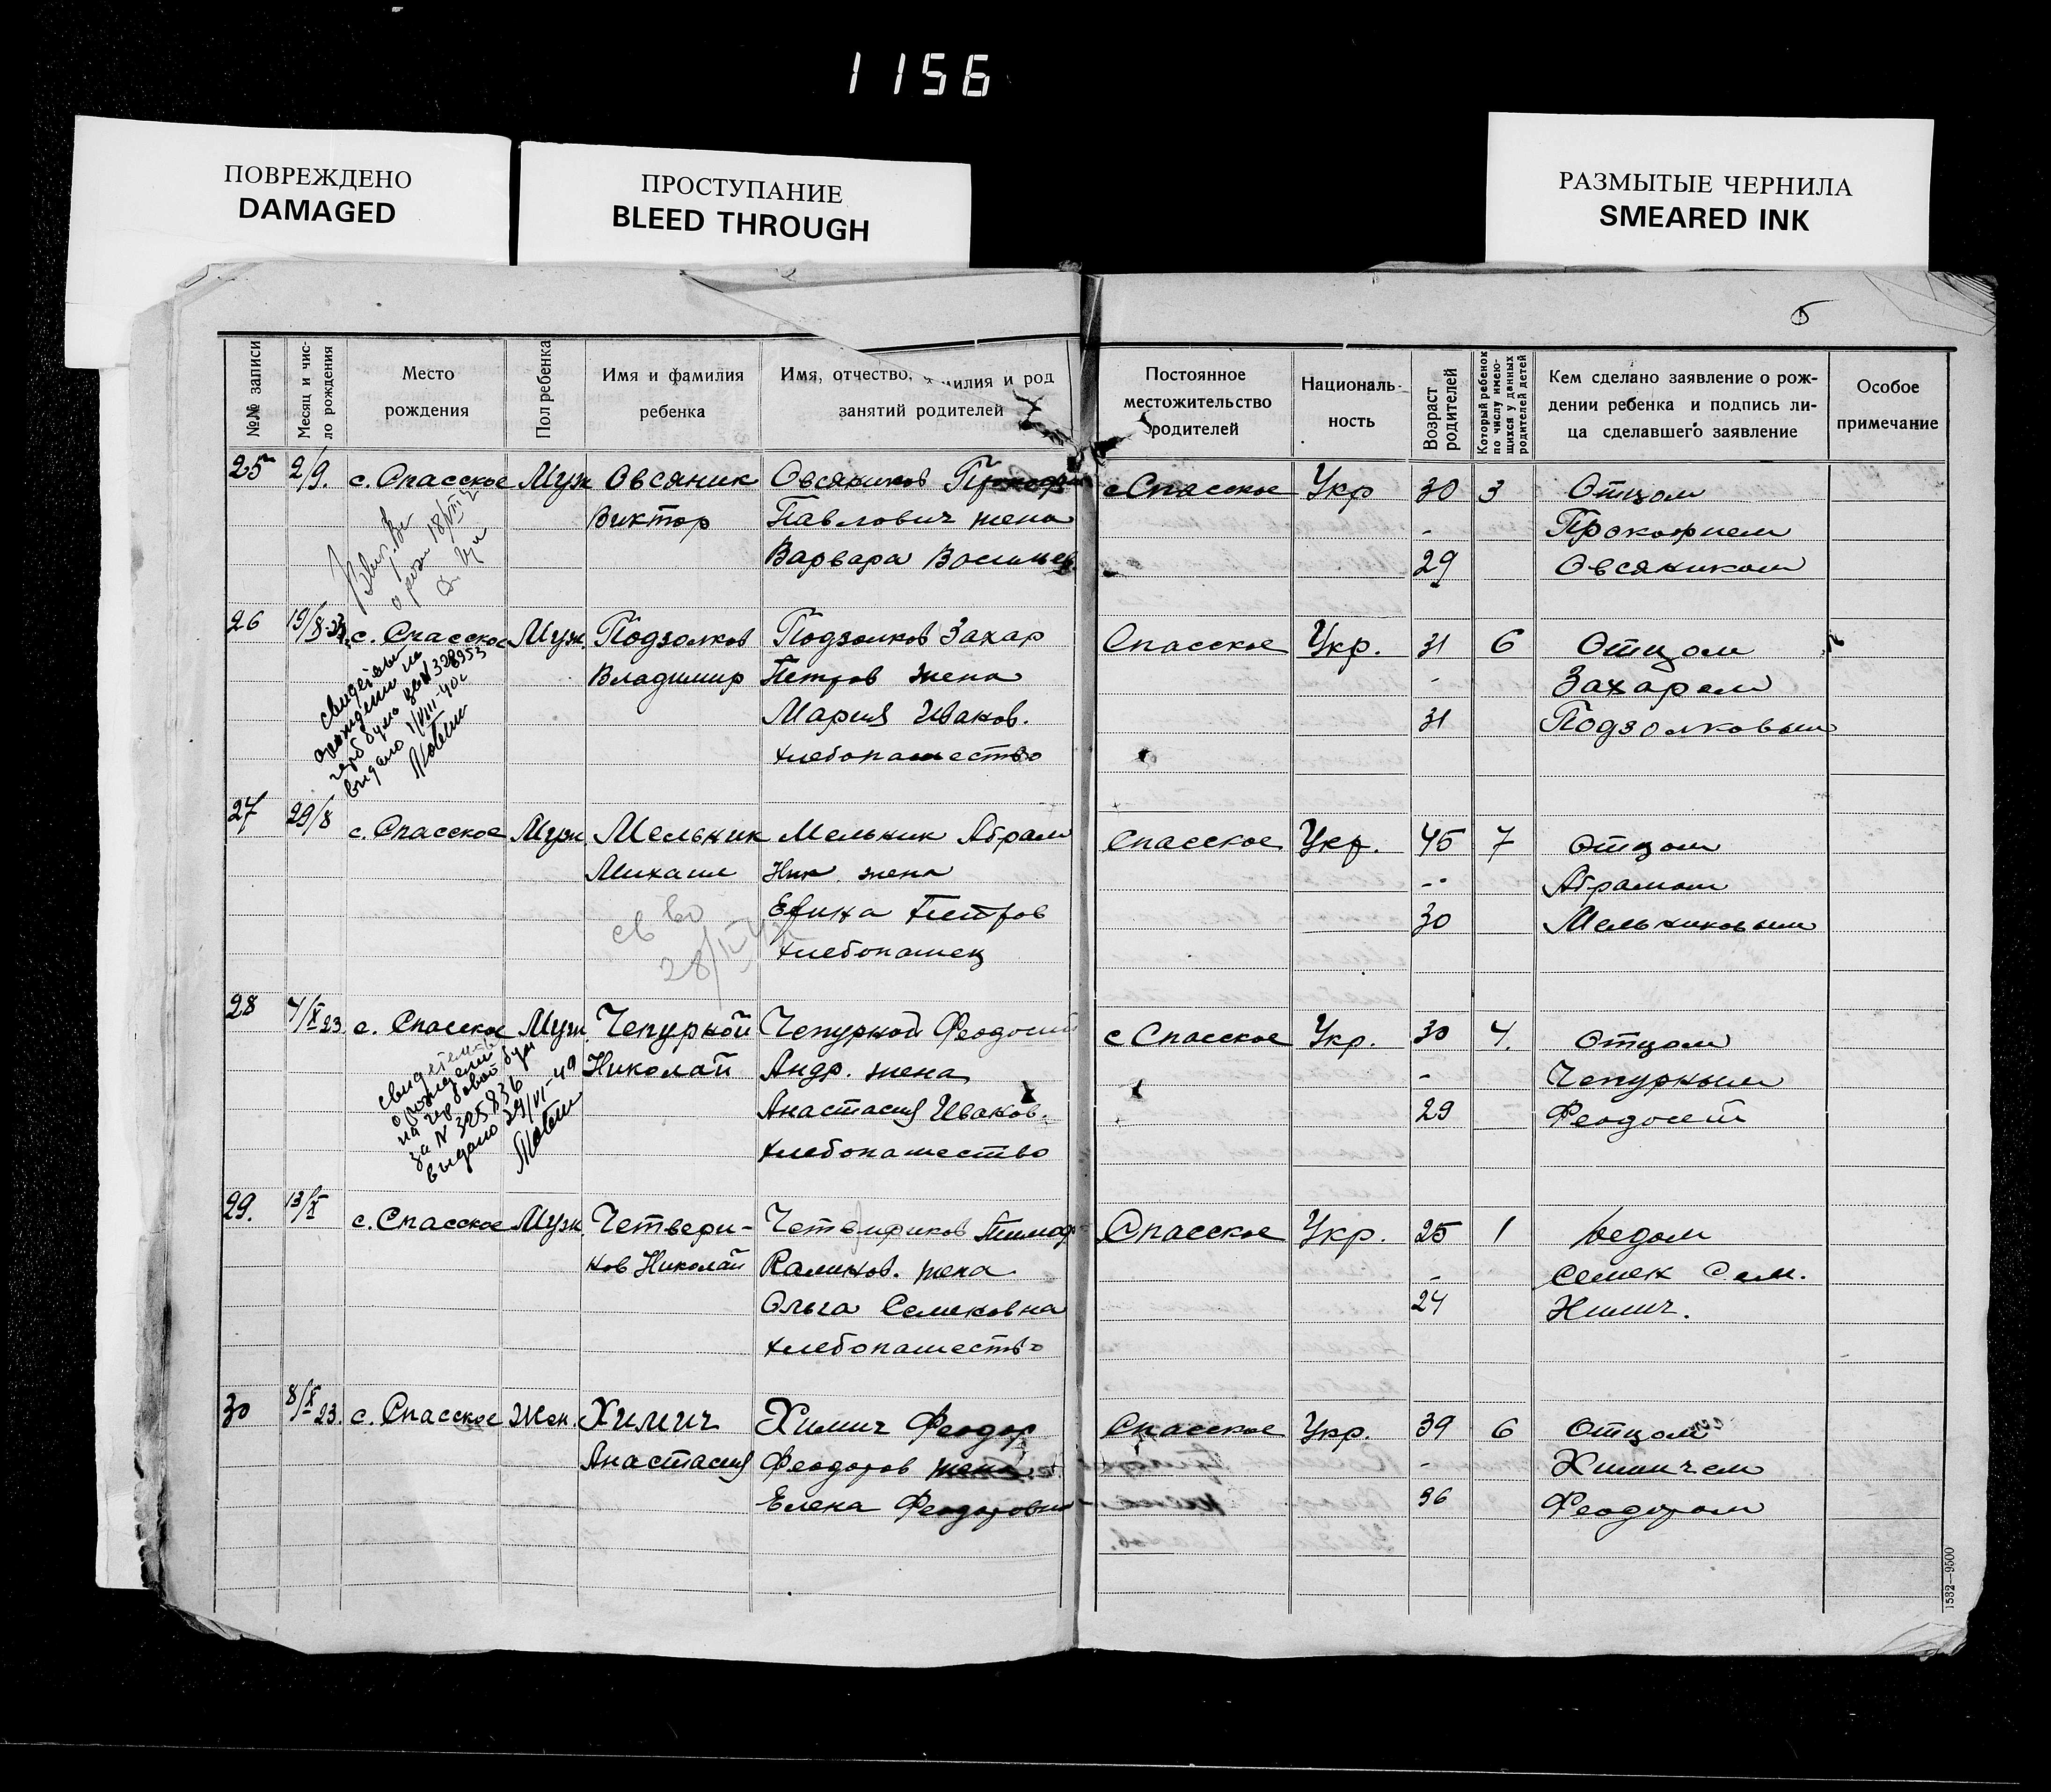 1156
ПОВРЕЖДЕНО
DAMAGED
ПРОСТУПАНИЕ
BLEED THROUGH
РАЗМЫТЫЕ ЧЕРНИЛА
SMEARED INK
№№ записи
Месяц и чис-
ло рождения
Место
рождения
Пол ребенка
Имя и фамилия
ребенка
Имя, отчество, милия и род
занятий родителей
Постоянное
местожительство
родителей
Националь-
ность
Возраст
родителей
Который ребенок
по числу имею-
щихся у данных
родителей детей
Кем сделано заявление о рож-
дении ребенка и подпись ли-
ца сделавшего заявление
Особое
примечание
25 2/9. с. Спасское Муж Овсяник Овсяников с Спасское Укр 30 3 Отцом
Виктор Павлович жена - Прокофием
Варвара Васильев 29 Овсяником
26 19/8-23 с. Спасское Муж. Подзолков Подзолков Захар Спасское Укр. 31 6 Отцом
Владимир Петров жена - Захаром
Мария Иванов. 31 Подзолковым
хлебопашество
свидетель
о рождении на
герб бумо за N 328953
выдано 1/VIII-40
27 29/8 с. Спасское Муж. Мельник Мельник Абрам Спасское Укр. 45 7 Отцом
Михаил Ник. жена - Абрамом
Петров 30 Мельниковым
хлебопашец
св во
28 4/X 23 с. Спасское Муж. Чепурной Чепурной Феодосий с Спасское Укр. 30 4. Отцом
Николай Андр. жена - Чепурным
Анастасия Иванов. 29 Феодосий
хлебопашество
свидетель
о рождении
на гербовой бум
за N 325836
выдано 29/VI-40
29. 13/X с. Спасское Муж. Четвери- Четвериков Тимоф Спасское Укр. 25 1 Дедом
ков Николай Калинов. жена - Семен Сем.
Ольга Семеновна 24 Химич.
хлебопашество
30 8/X 23. с. Спасское Жен. Химич Химич Феодор Спасское Укр. 39 6 Отцом
Анастасия Феодоров жена - Химичем
Елена Феодоровна 36 Феодором
1532—9500